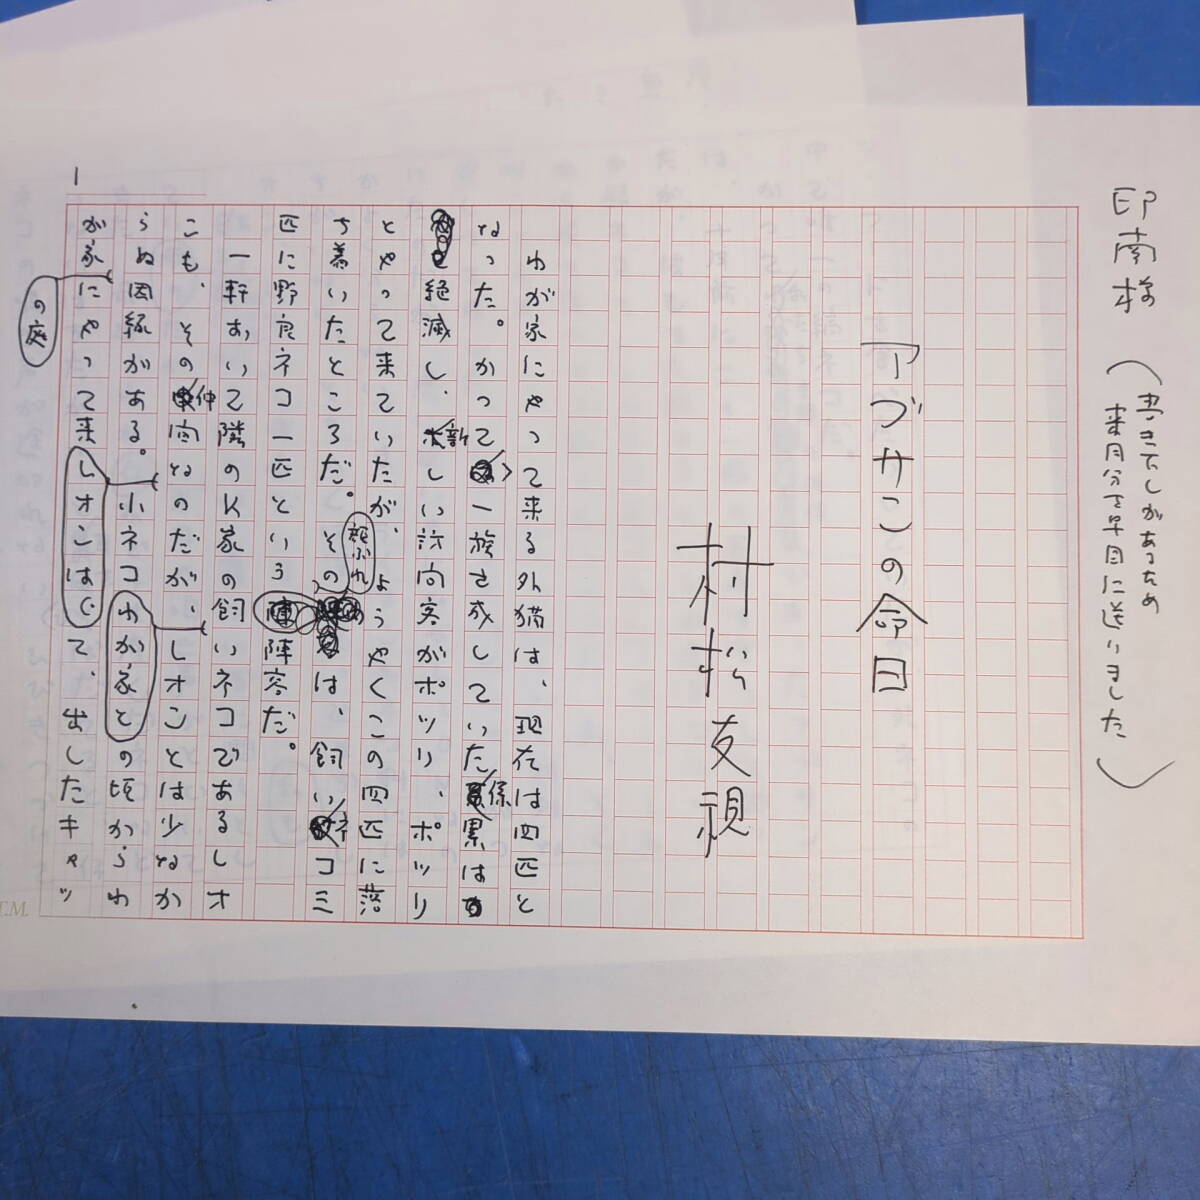 印南様
(書き下しがあるため
来月分を早目に送りました)
アブサンの命日
村松友視
1
わが家にやって来る外猫は、現在は四匹と
なった。かつて一族を成していた係累は
絶滅し、新しい訪問客がポツリ、ポツリ
とやって来ていたが、ようやくこの四匹に落
ち着いたところだ。その顔ぶれは、飼いネコ三
匹に野良ネコ一匹という陣容だ。
一軒おいて隣のK家の飼いネコであるレオ
こも、その仲間なのだが、レオンとは少なか
らぬ因縁がある。小ネコの頃からわ
が家の庭にやって来て、出したキャッ
レオンは
わが家と